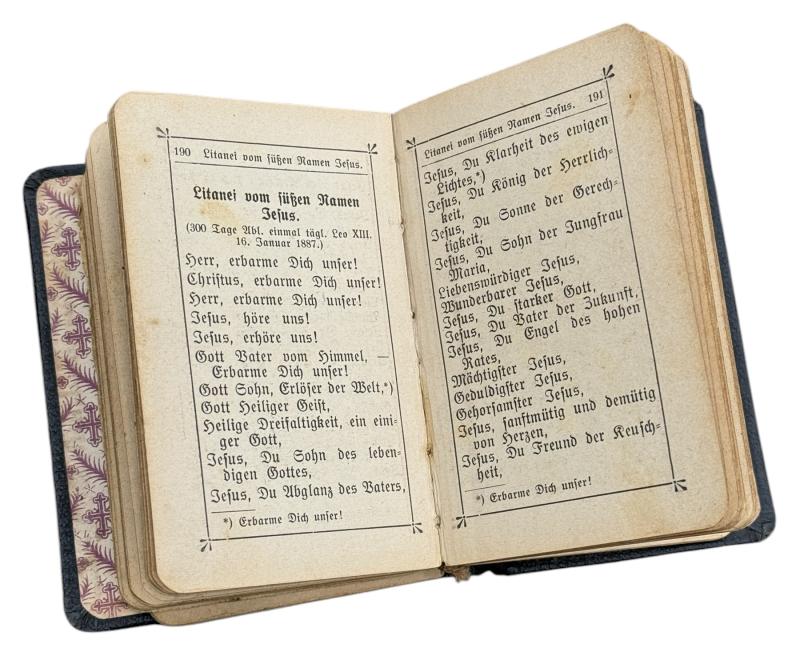 190 Litanei vom süßen Namen Jesus.
Litanei vom süßen Namen
Jesus.
(300 Tage Abl. einmal tägl. Leo XIII.
16. Januar 1887.)
Herr, erbarme Dich unser!
Christus, erbarme Dich unser!
Herr, erbarme Dich unser!
Jesus, höre uns!
Jesus, erhöre uns!
Gott Vater vom Himmel, —
Erbarme Dich unser!
Gott Sohn, Erlöser der Welt,*)
Gott Heiliger Geist,
Heilige Dreifaltigkeit, ein eini-
ger Gott,
Jesus, Du Sohn des leben-
digen Gottes,
Jesus, Du Abglanz des Vaters,
*) Erbarme Dich unser!
Litanei vom süßen Namen Jesus. 191
Jesus, Du Klarheit des ewigen
Lichtes,*)
Jesus, Du König der Herrlich-
keit,
Jesus, Du Sonne der Gerech-
tigkeit,
Jesus, Du Sohn der Jungfrau
Maria,
Liebenswürdiger Jesus,
Wunderbarer Jesus,
Jesus, Du starker Gott,
Jesus, Du Vater der Zukunft,
Jesus, Du Engel des hohen
Rates,
Mächtigster Jesus,
Geduldigster Jesus,
Gehorsamster Jesus,
Jesus, sanftmütig und demütig
von Herzen,
Jesus, Du Freund der Keusch-
heit,
*) Erbarme Dich unser!